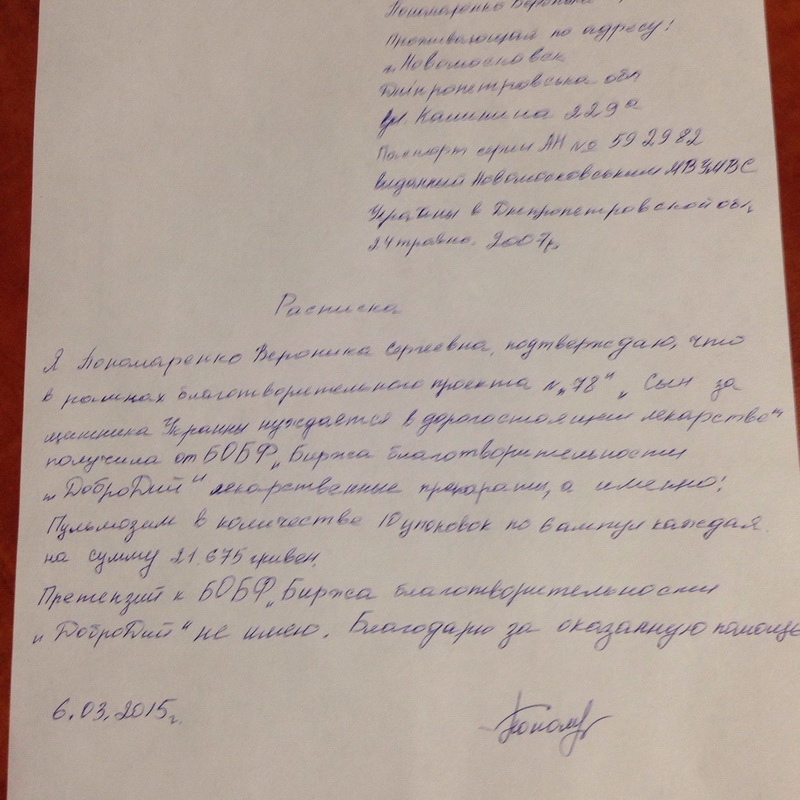 Пономаренко Вероника
Проживающая по адресу:
г. Новомосковск
Дніпропетровська обл
ул. Калинина 229а
Паспорт серии АН № 592982
виданний Новомосковським МВ УМВС
Украины в Дніпропетровской обл,
24 травня. 2007р.
Расписка
Я Пономаренко Вероника Сергеевна, подтверждаю, что
в рамках благотворительного проекта №„78" „Сын за
щитника Украины нуждается в дорогостоящем лекарстве"
получила от БОБФ „Биржа благотворительности
„ДоброДий" лекарственные препараты, а именно:
Пульмозим в количестве 10 упаковок по 6 ампул каждая
на сумму 21.675 гривен.
Претензий к БОБФ „Биржа благотворительности
„ДоброДий" не имею. Благодарю за оказанную помощь
6.03.2015г.